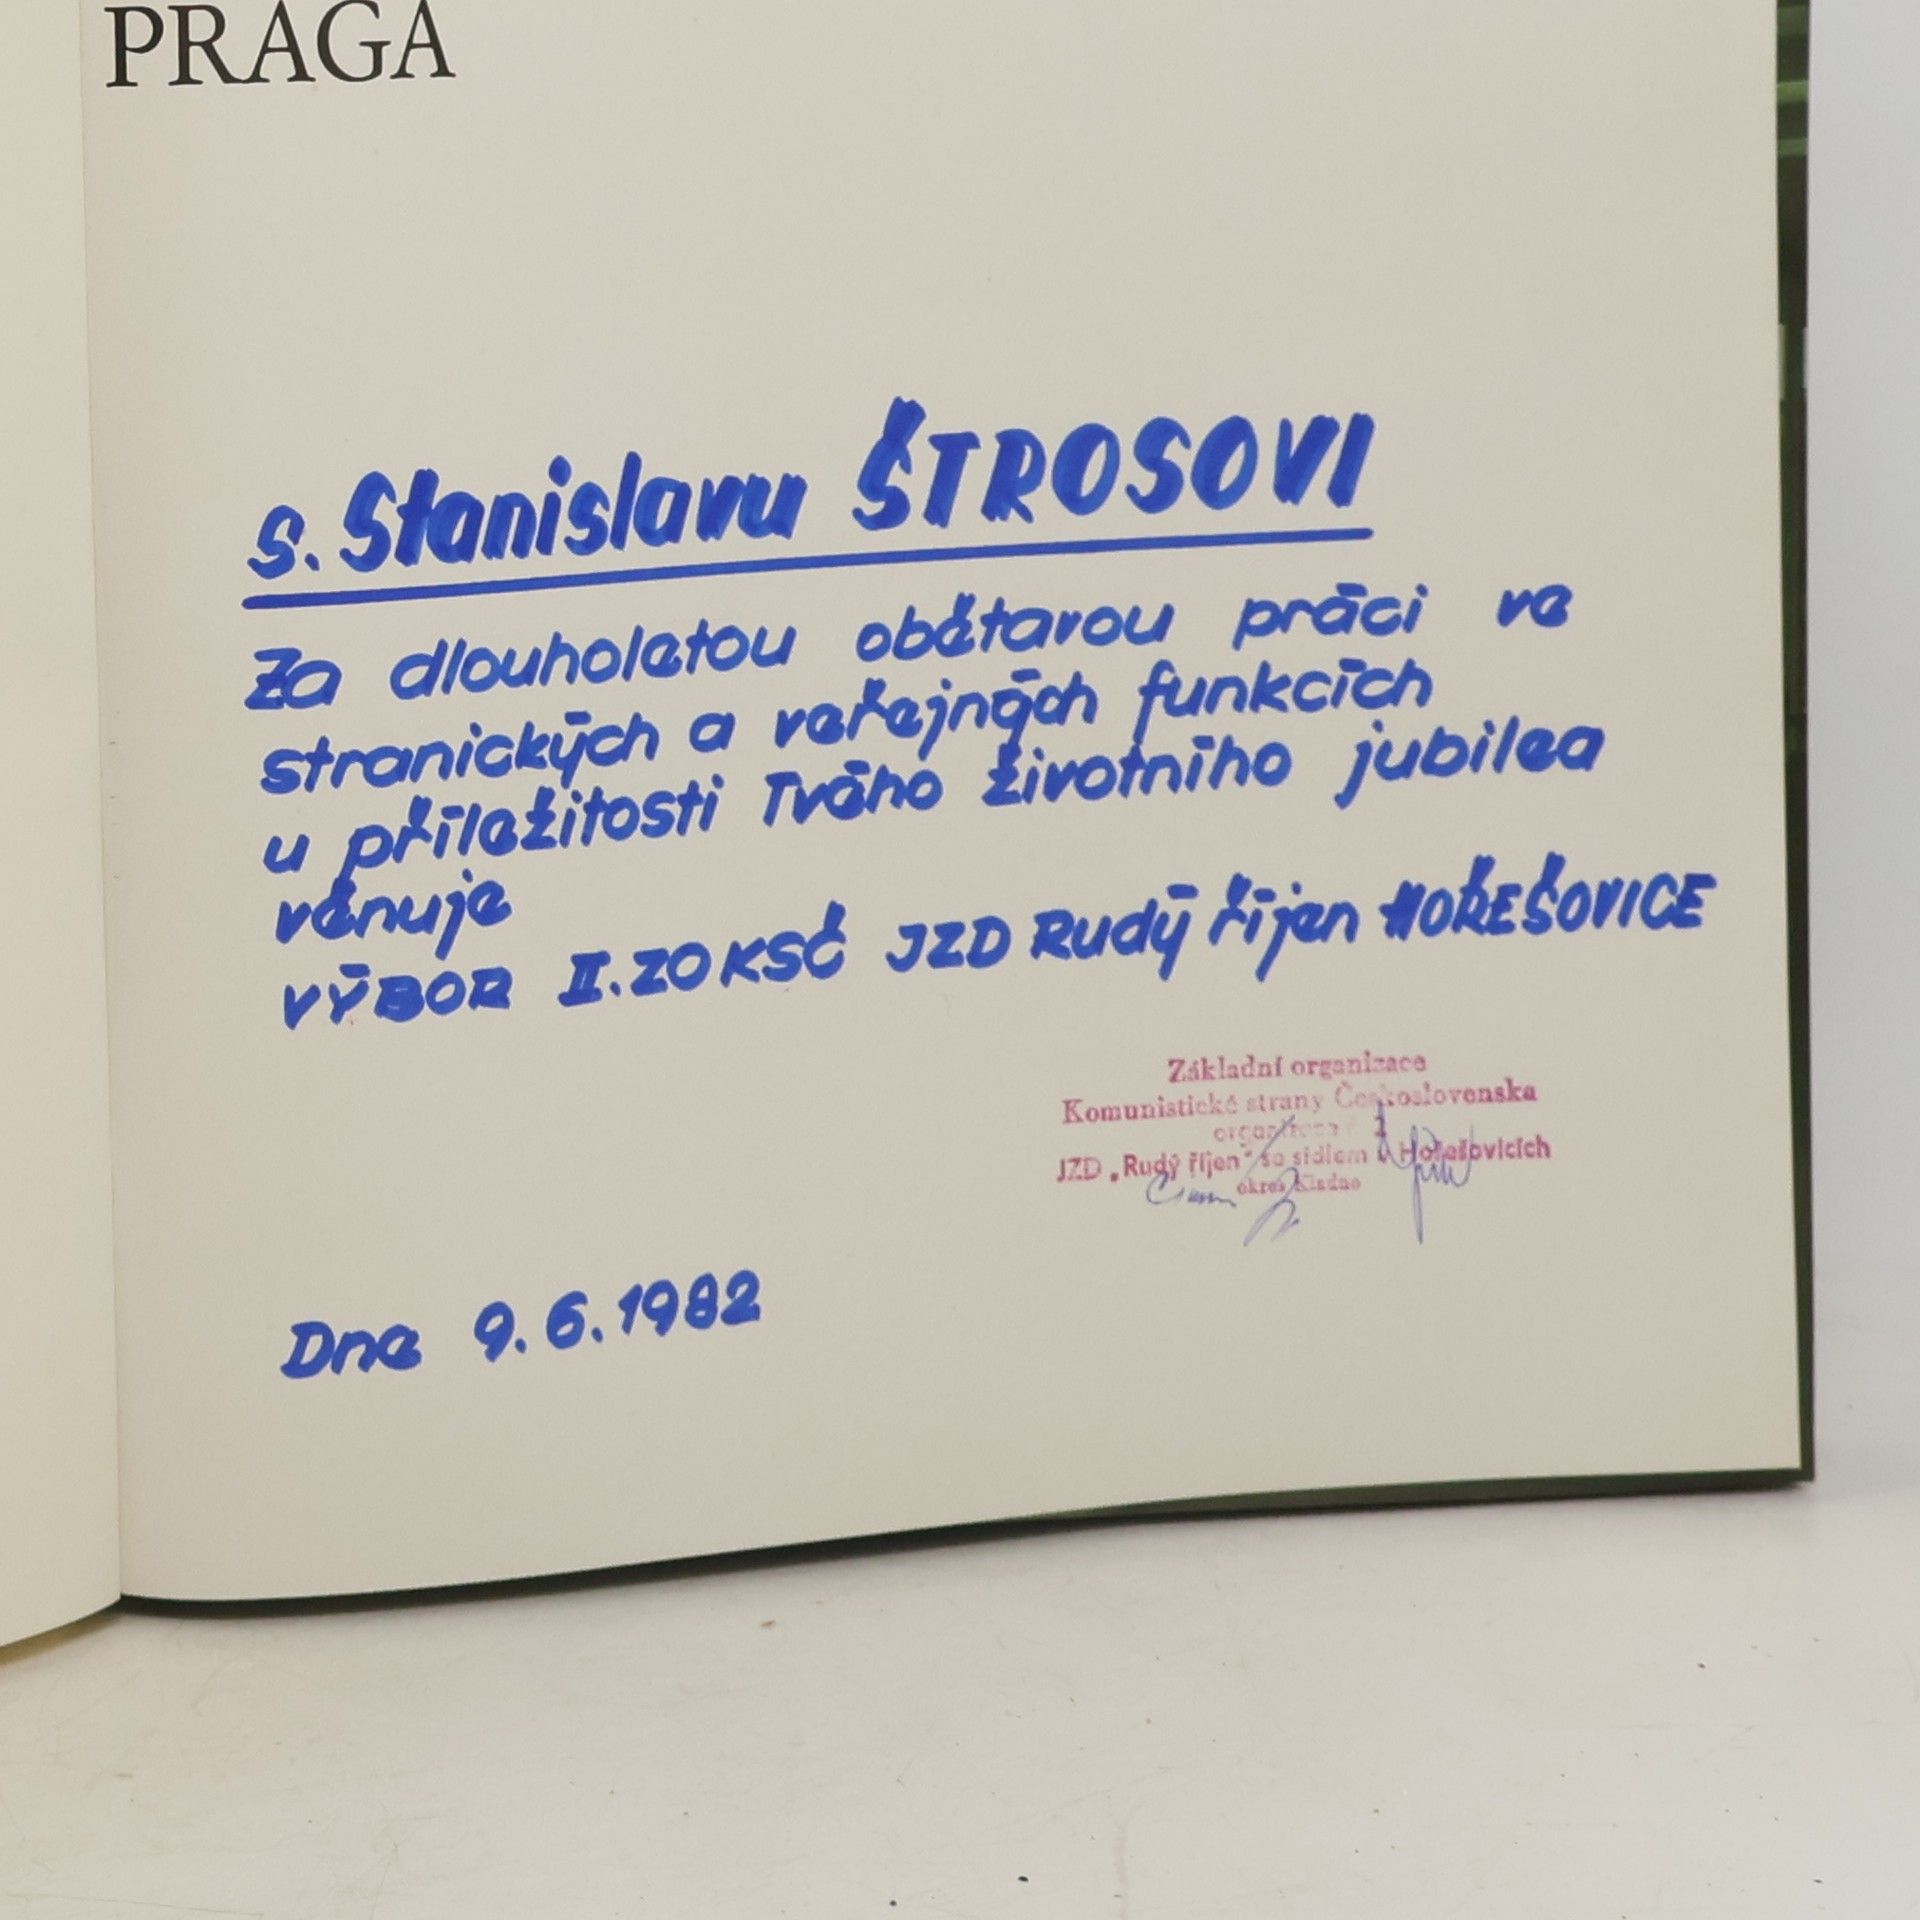 PRAGA
s. Stanislavu ŠTROSOVI
Za dlouholetou obětavou práci ve
stranických a veřejných funkcích
u příležitosti Tvého životního jubilea
věnuje
VÝBOR II. ZO KSČ JZD Rudý říjen HOŘEŠOVICE
Základní organizace
Komunistické strany Československa
JZD „Rudý říjen" se sídlem v Hořešovicích
okres Kladno
Dne 9. 6. 1982